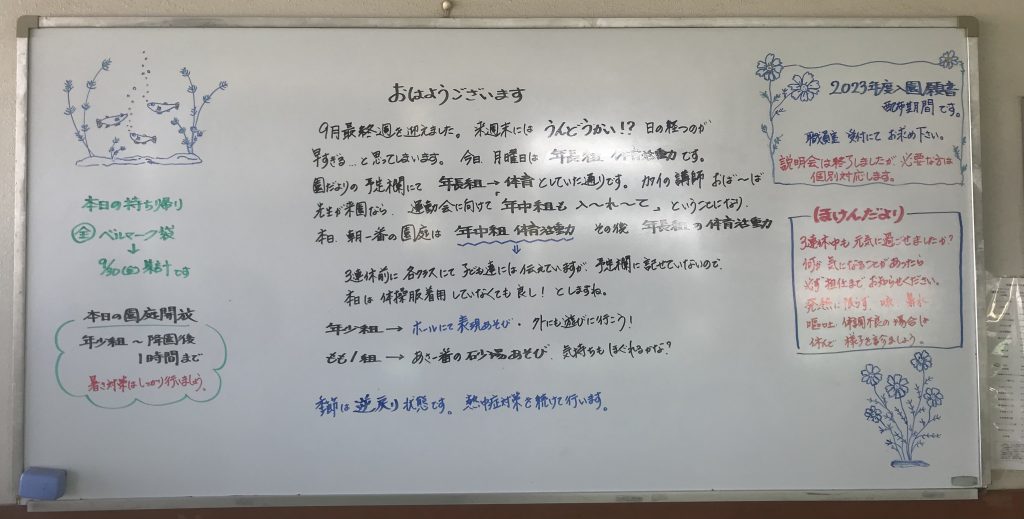 おはようございます
9月最終週を迎えました。来週末には うんどうかい!? 日の経つのが
早すぎる…と思ってしまいます。今日、月曜日は 年長組 体育活動です。
園だよりの予定欄にて 年長組→体育としていた通りです。カワイの講師 おば~ば
先生が来園なら、運動会に向けて「年中組も 入~れ~て」ということになり、
本日、朝一番の園庭は 年中組 体育活動 その後 年長組の体育活動
↓
3連休前に各クラスにて子ども達には伝えていますが、予定欄に記せていないので、
本日は 体操服着用していなくても良し! としますね。
年少組 → ホールにて表現あそび・外にも遊びに行こう!
もも1組 → あさ一番の砂場あそび、気持ちもほぐれるかな?
季節は逆戻り状態です。熱中症対策を続けて行います。
本日の持ち帰り
全 ベルマーク袋
↓
9/30(金)集計です
本日の園庭開放
年少組~降園後
1時間まで
暑さ対策はしっかり行いましょう。
2023年度入園願書
配布期間です。
職員室 受付にてお求め下さい。
説明会は終了しましたが必要な方は
個別対応します。
ほけんだより
3連休中も元気に過ごせましたか?
何か気になることがあったら
必ず担任までお知らせください。
発熱に限らず、咳、鼻水
嘔吐、体調不良の場合は
休んで様子を見ましょう。